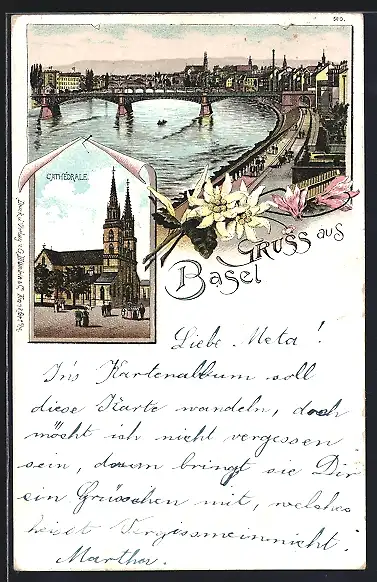 510.
CATHÉDRALE.
GRUSS aus
Basel
Liebe Meta!
In's Kartenalbum soll
diese Karte wandeln, doch
möcht ich nicht vergessen
sein, darum bringt sie Dir
ein Grüsschen mit, welches
heisst Vergissmeinnicht.
Martha.